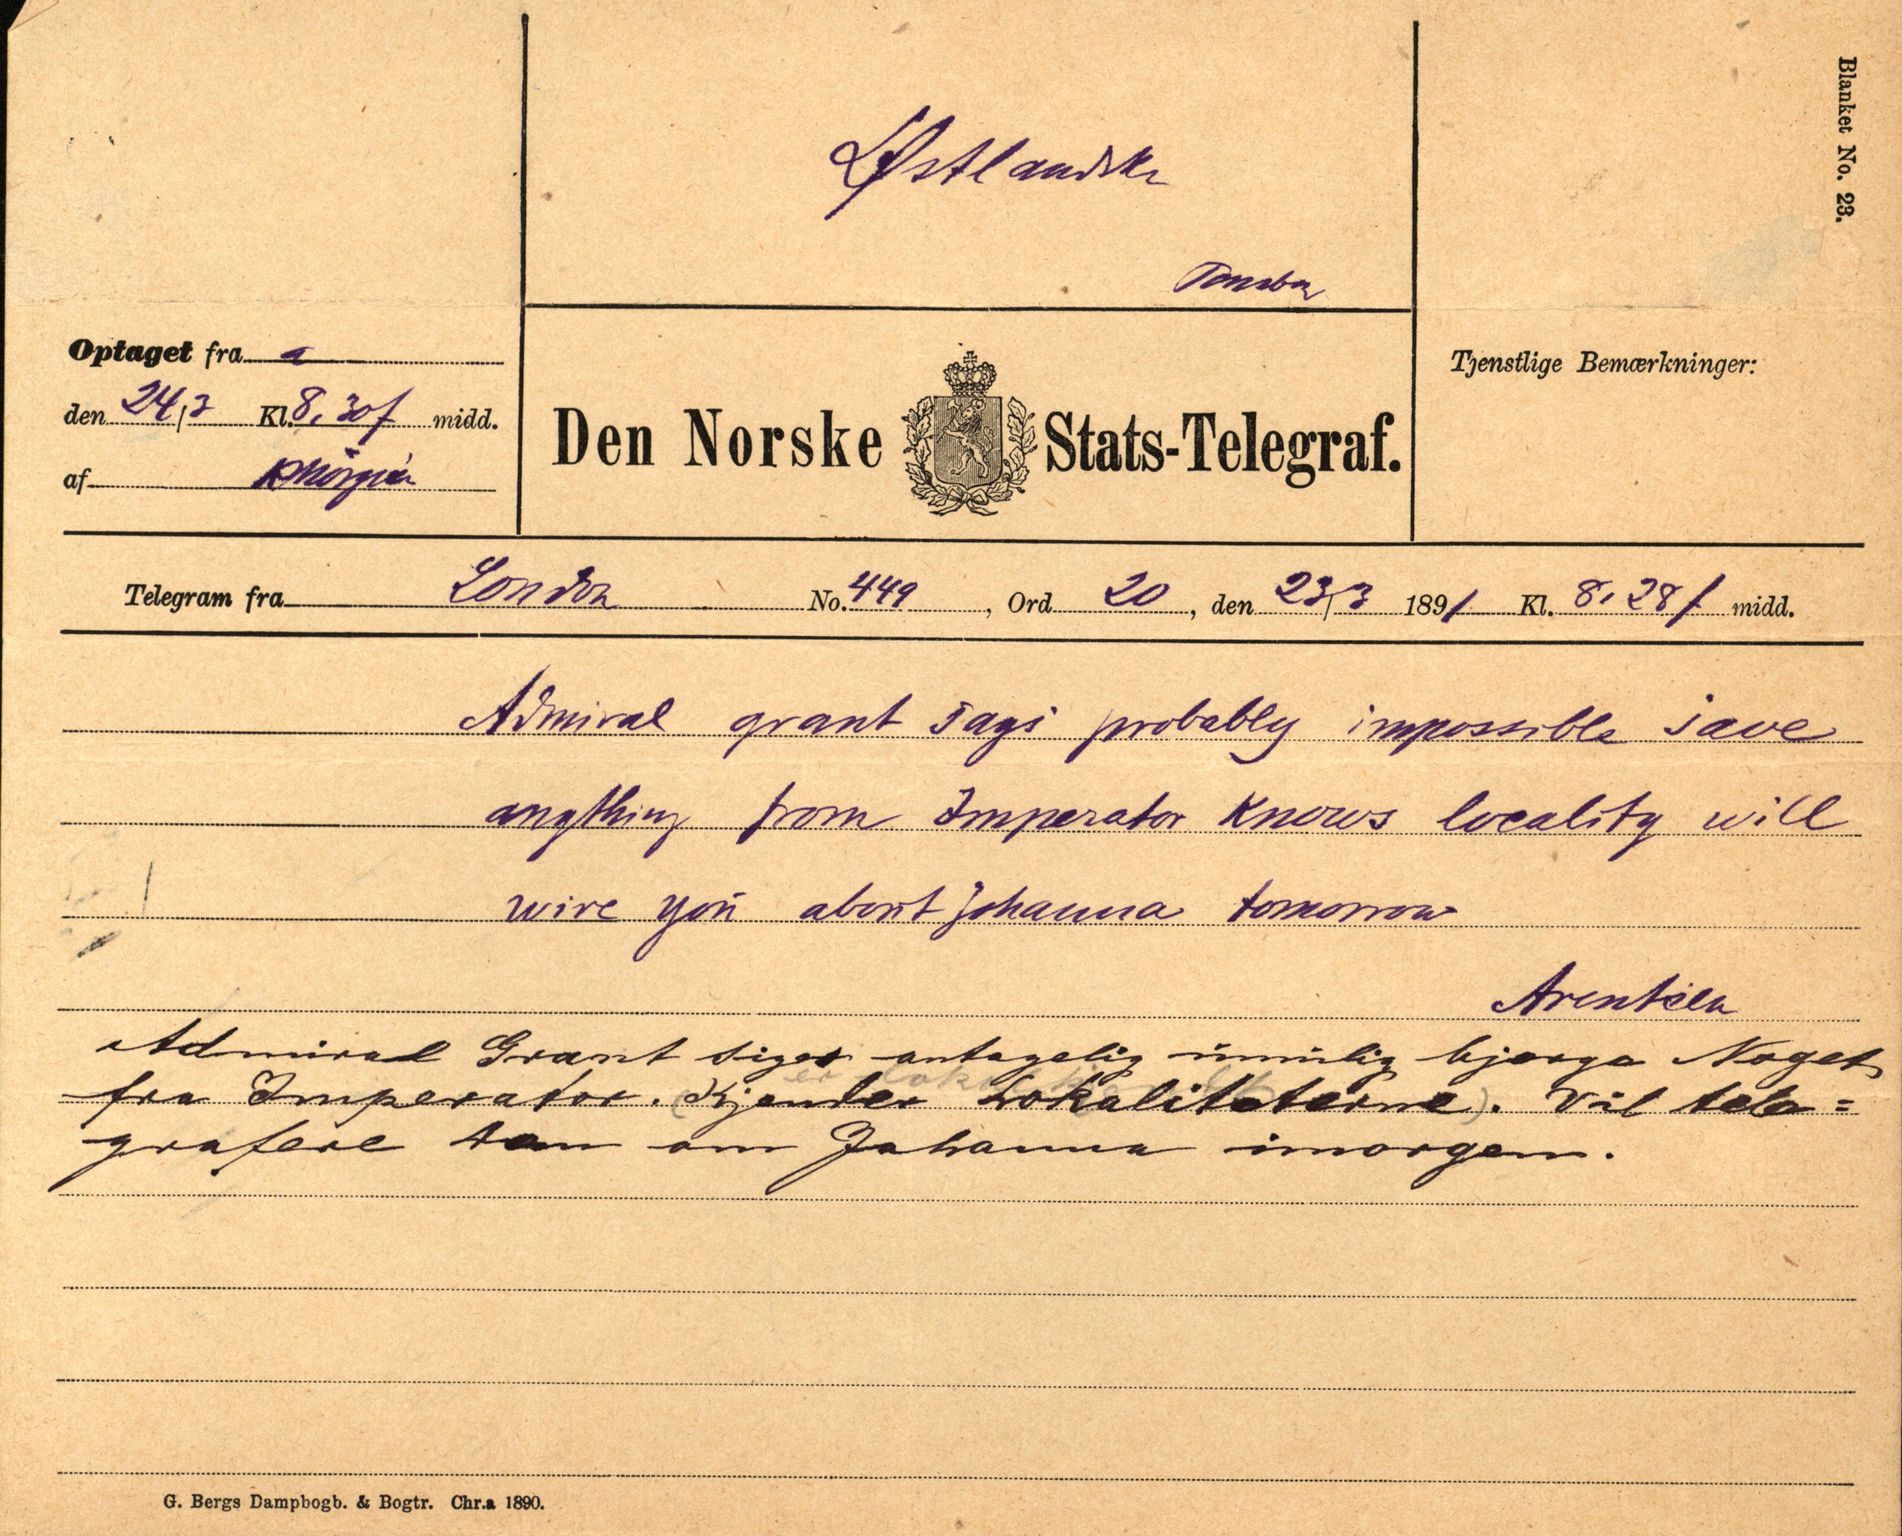 Blanket No. 23.
Østlandske
Optaget fra a
den 24/3 Kl. 8,30 f midd.
af
Den Norske Stats-Telegraf.
Tjenstlige Bemærkninger:
Telegram fra London No. 449, Ord 20, den 23/3 1891 Kl. 8,28 f midd.
Admiral grant says probably impossible save
anything from Imperator knows locality will
wire you about Johanna tomorrow
Arentsen
Admiral Grant siger antagelig umulig bjerge Noget
fra Imperator. (Kjender Lokaliteterne). Vil tele=
grafere om Johanna imorgen.
G. Bergs Dampbogb. & Bogtr. Chr.a 1890.